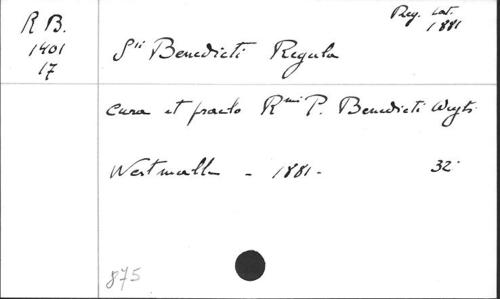 R B.
1401
17
Reg. Lat.
1881
Sti Benedicti Regula
cura et praelo Rmi P. Benedicti Wuyts
Westmalle - 1881 -
32°
875